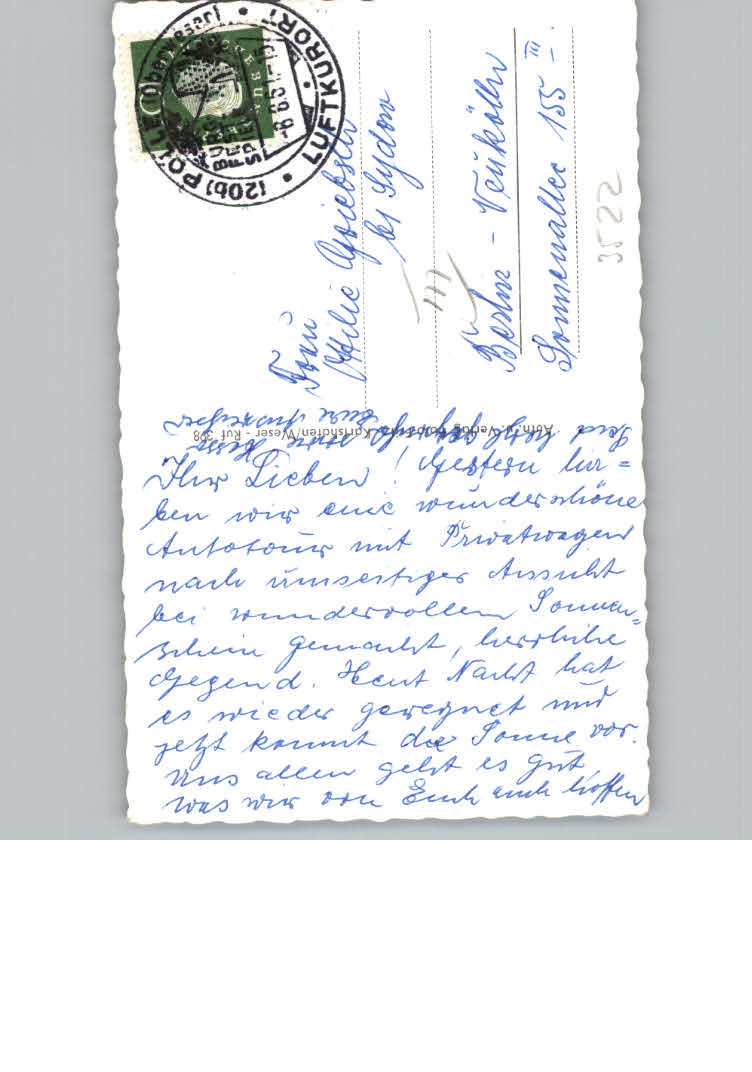 (20b) POLLE (Oberweser)
LUFTKURORT
Frau
Ottilie
bei Sydow
Berlin - Neukölln
Sonnenallee 155 III.
3522
Verlag
Karlshafen/Weser - Ruf 398
Ihr Lieben! Gestern ha=
ben wir eine wunderschöne
Autotour mit Privatwagen
nach umseitiger Ansicht
bei wundervollem Sonnen=
schein gemacht, herrliche
Gegend. Heut Nacht hat
es wieder geregnet und
jetzt kommt die Sonne vor.
Uns allen geht es gut
was wir von Euch auch hoffen